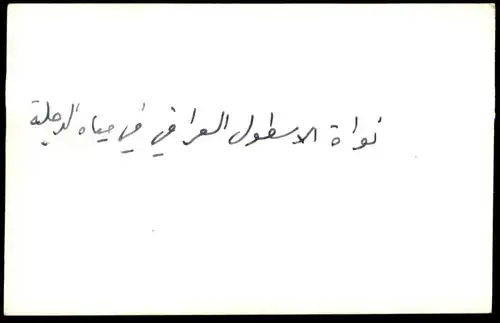 نواة الاسطول العراقي في مياه الدجلة